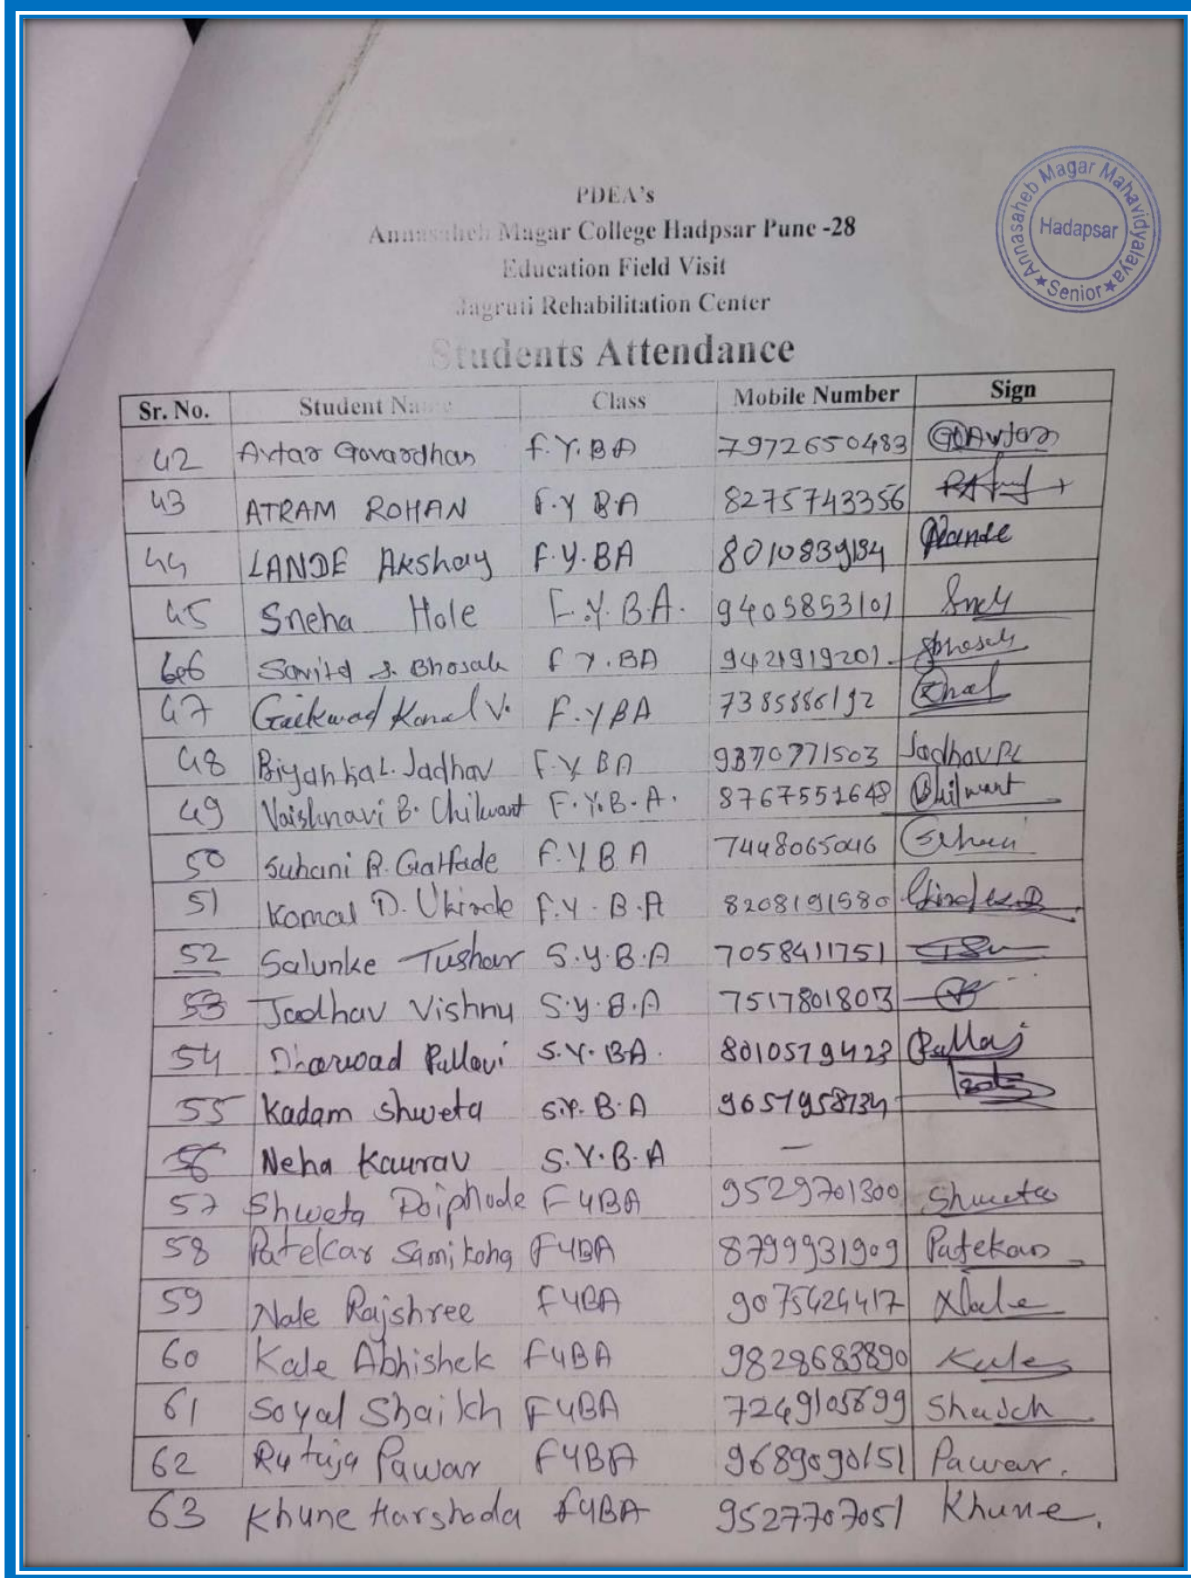 PDEA's
Annasaheb Magar College Hadpsar Pune -28
Education Field Visit
Jagruti Rehabilitation Center
Students Attendance
Annasaheb Magar Mahavidyalaya
Hadapsar
★ Senior ★
Sr. No. Student Name Class Mobile Number Sign
42 Avtar Govardhan F.Y.BA 7972650483 GAvtar
43 ATRAM ROHAN F.Y BA 8275743356
44 LANDE Akshay F.Y.BA 8010839134 Lande
45 Sneha Hole F.Y.B.A. 9405853101 Sneh
46 Savita S. Bhosale F Y.BA 9421919201
47 Gaikwad Komal V. F.Y BA 7385886192
48 Priyanka L. Jadhav F.Y BA 9370771503 Jadhav PL
49 Vaishnavi B. Chilwant F.Y.B.A. 8767551648 Chilwant
50 Suhani R. Gatfade F.Y B A 7448065046
51 Komal D. Ukirde F.Y.B.A 8208191580
52 Salunke Tushar S.Y.B.A 7058411751
53 Jadhav Vishnu S.Y.B.A 7517801803
54 Dharwad Pallavi S.Y.BA. 8010579423 Pallavi
55 Kadam Shweta S.Y.B.A 9657958734
56 Neha Kaurav S.Y.B.A —
57 Shweta Doiphode FYBA 9529701300 Shweta
58 Patekar FYBA 8799931909 Patekar
59 Nale Rajshree FYBA 9075424417 Nale
60 Kale Abhishek FYBA 9828683890 Kale
61 Soyal Shaikh FYBA 7249105899
62 Rutuja Pawar FYBA 9689090151 Pawar.
63 Khune Harshada FYBA 9527707051 Khune.